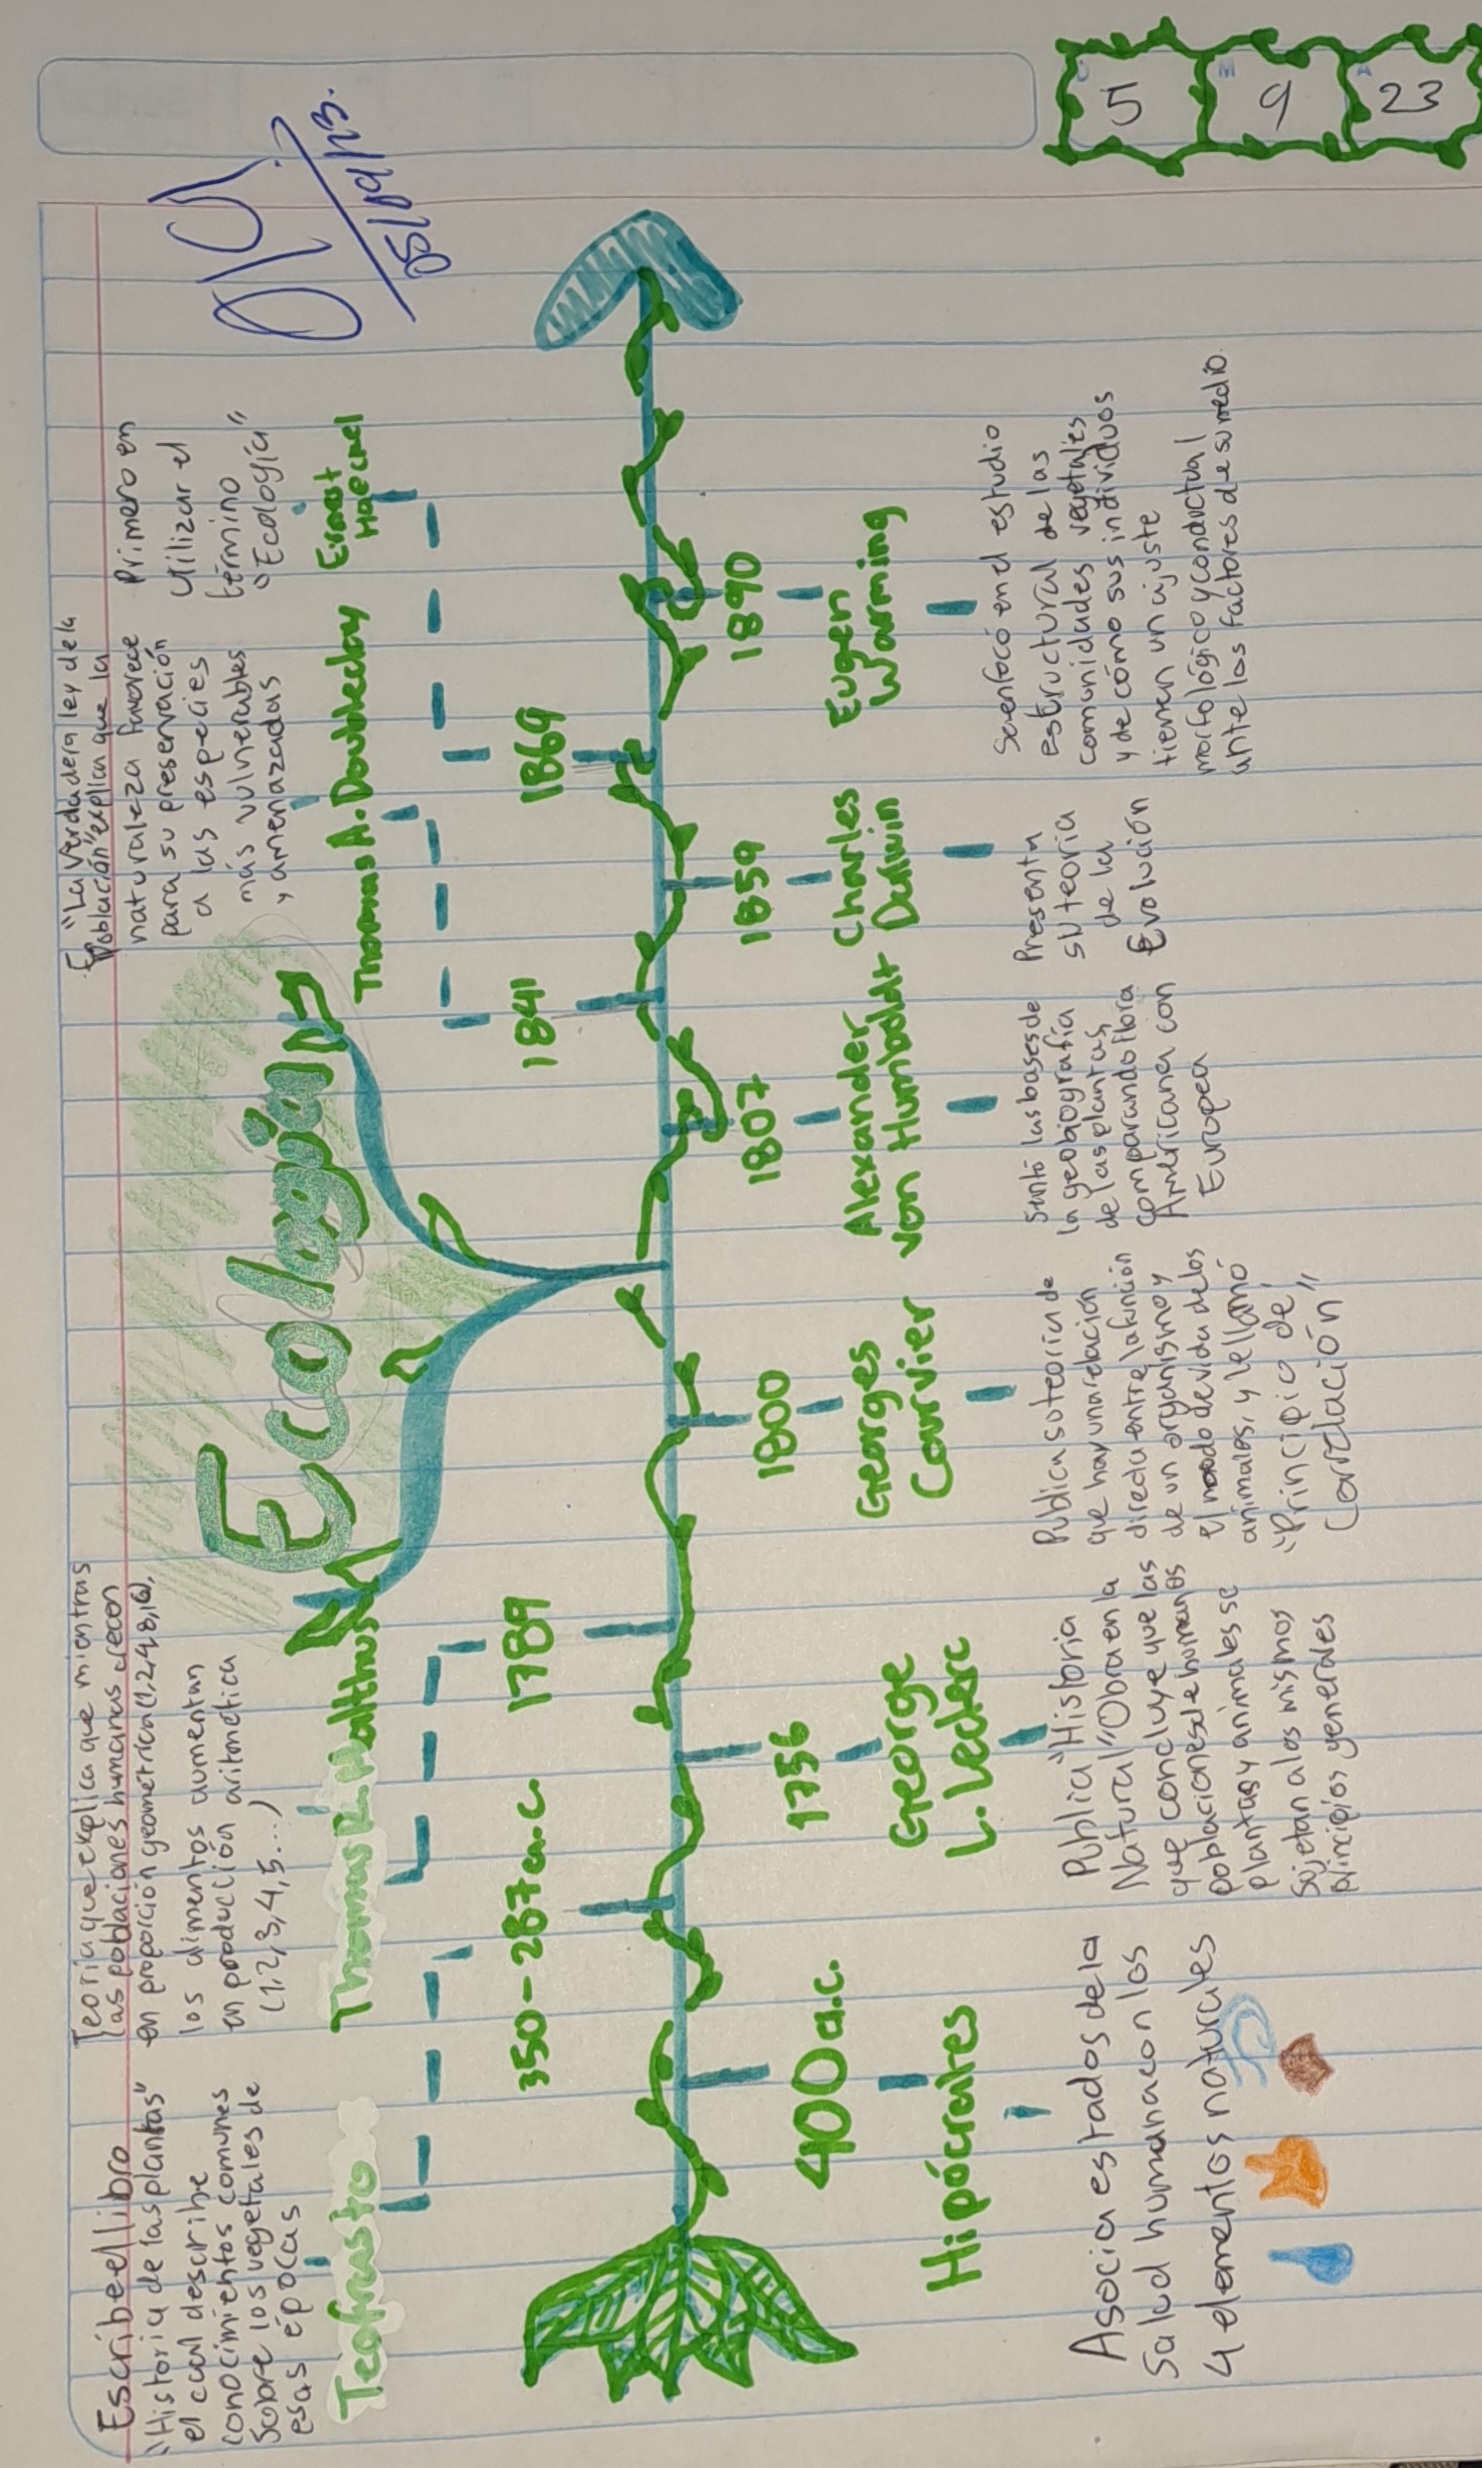 5
9
23
05/09/23.
Ecología
Escribe el libro
"Historia de las plantas"
el cual describe
conocimientos comunes
sobre los vegetales de
esas épocas
Teofrasto
350-287 a.c.
Teoría que explica que mientras
las poblaciones humanas crecen
en proporción geométrica (1,2,4,8,16),
los alimentos aumentan
en producción aritmética
(1,2,3,4,5...)
Thomas R. Malthus
1789
En "La Verdadera ley de la
Población" explica que la
naturaleza favorece
para su preservación
a las especies
más vulnerables
y amenazadas
Thomas A. Doubleday
1841
Primero en
utilizar el
término
"Ecología"
Ernest
Haeckel
1869
400 a.c.
Hipócrates
Asocia estados de la
Salud humana con los
4 elementos naturales
1756
George
L. Leclerc
Publica "Historia
Natural" Obra en la
que concluye que las
poblaciones de humanos
plantas y animales se
sujetan a los mismos
principios generales
1800
Georges
Courvier
Publica su teoría de
que hay una relación
directa entre la función
de un organismo y
el modo de vida de los
animales, y le llamó
"Principio de
Correlación"
1807
Alexander
von Humboldt
Sentó las bases de
la geobiografía
de las plantas,
comparando flora
Americana con
Europea
1859
Charles
Darwin
Presenta
su teoría
de la
Evolución
1890
Eugen
Warming
Se enfocó en el estudio
estructural de las
comunidades vegetales
y de cómo sus individuos
tienen un ajuste
morfológico y conductual
ante los factores de su medio.